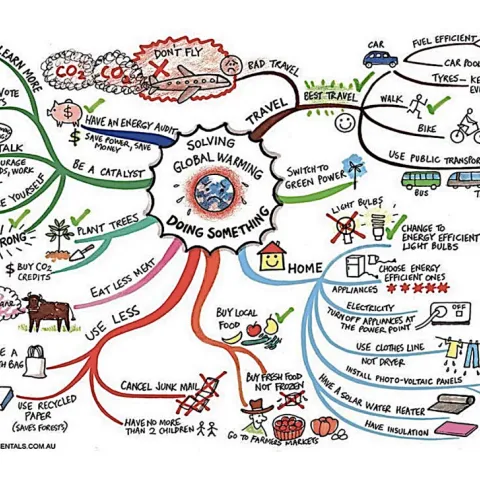 SOLVING
GLOBAL WARMING
DOING SOMETHING
CO2
CO2
DON'T FLY
BAD TRAVEL
TRAVEL
BEST TRAVEL
CAR
FUEL EFFICIENT
CAR POO
TYRES - KE
EV
WALK
BIKE
USE PUBLIC TRANSPOR
BUS
T
SWITCH TO
GREEN POWER
HOME
LIGHT BULBS
CHANGE TO
ENERGY EFFICIENT
LIGHT BULBS
CHOOSE ENERGY
EFFICIENT ONES
APPLIANCES
ELECTRICITY
TURN OFF APPLIANCES AT
THE POWER POINT
OFF
USE CLOTHES LINE
NOT DRYER
INSTALL PHOTO-VOLTAIC PANELS
HAVE A SOLAR WATER HEATER
HAVE INSULATION
BUY LOCAL
FOOD
BUY FRESH FOOD
NOT FROZEN
GO TO FARMERS MARKETS
USE LESS
CANCEL JUNK MAIL
HAVE NO MORE
THAN 2 CHILDREN
USE RECYCLED
PAPER
(SAVES FORESTS)
E A
H BAG
EAT LESS MEAT
PLANT TREES
$ BUY CO2
CREDITS
BE A CATALYST
LEARN MORE
VOTE
TS
TALK
OURAGE
DS, WORK
E YOURSELF
RONG
HAVE AN ENERGY AUDIT
$ SAVE POWER, SAVE
MONEY
$
ENTALS.COM.AU